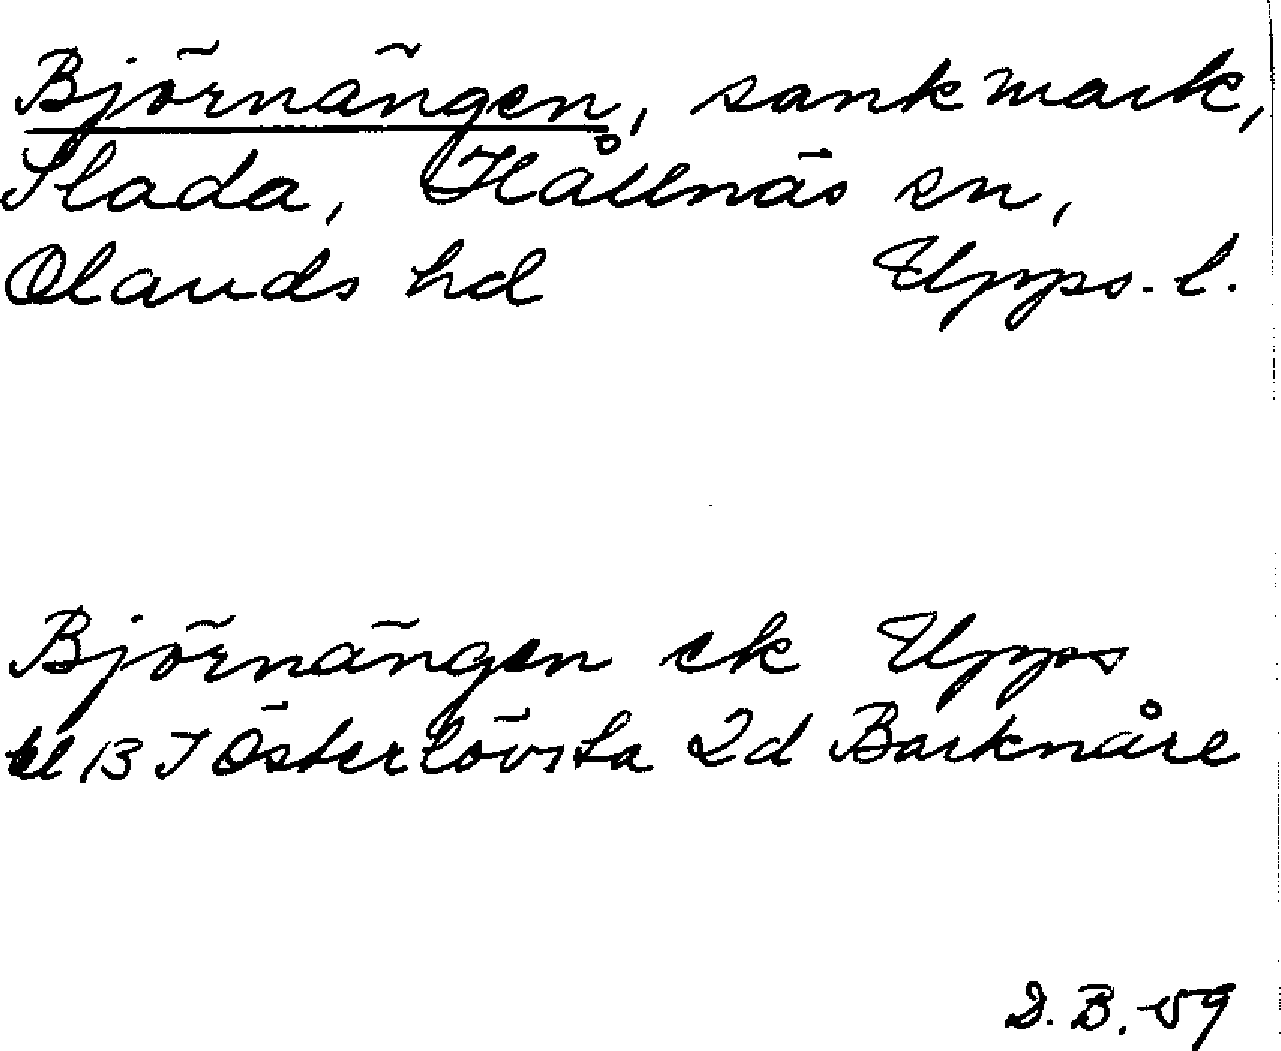 Björnängen, sankmark,
Slada, Hållnäs sn,
Olands hd Upps. l.
Björnängen ek Upps
bl 13 I Österlövsta 2d Barknåre
D. B. -59